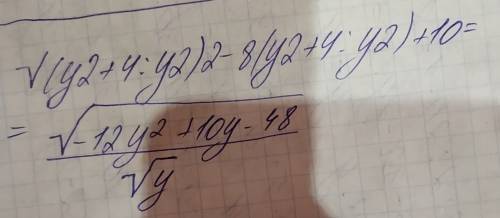 √(y2+4:y2)2-8(y2+4:y2)+10=
= √-12y²+10y-48
√y